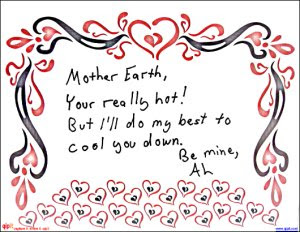 Mother Earth,
Your really hot!
But I'll do my best to
cool you down.
Be mine,
AL